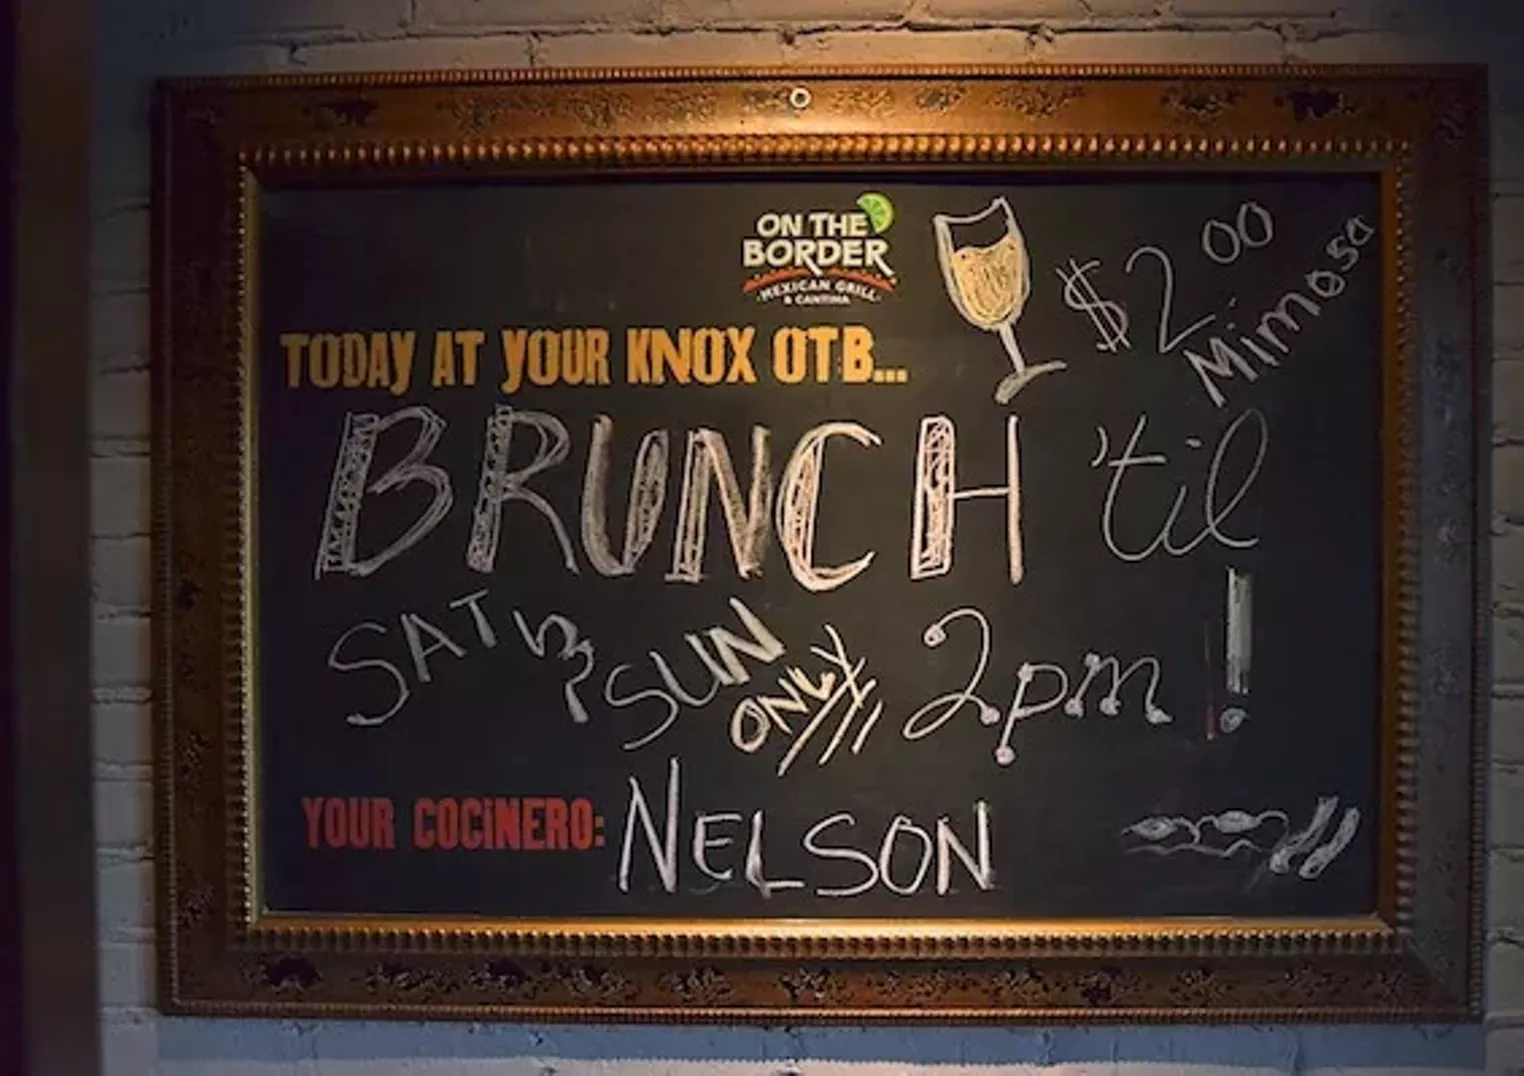 ON THE
BORDER
MEXICAN GRILL
& CANTINA
$2.00
Mimosa
TODAY AT YOUR KNOX OTB...
BRUNCH 'til
SAT & SUN ONLY 2pm!
YOUR COCINERO: NELSON